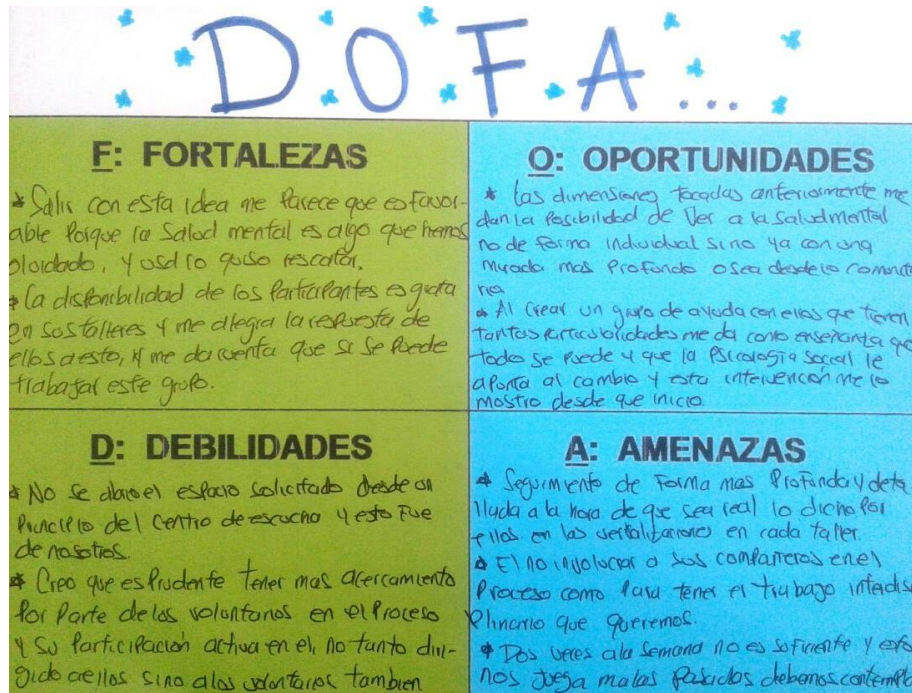 D.O.F.A...
F: FORTALEZAS
* Salir con esta idea me Parece que es favor-
able Porque la Salud mental es algo que hemos
olvidado, y usd lo quiso rescatar.
* La disponibilidad de los Participantes es grata
en sus talleres y me alegra la respuesta de
ellos a esto, y me da cuenta que si se Puede
trabajar este grupo.
O: OPORTUNIDADES
* Las dimensiones tocadas anteriormente me
dan la Posibilidad de Ver a la salud mental
no de forma individual sino ya con una
mirada mas Profunda o sea desde lo comunita
ria
* Al crear un grupo de ayuda con ellos que tienen
tantas particularidades me da como enseñanza que
todo se puede y que la Psicologia social le
apunta al cambio y esta intervención me lo
mostro desde que inicio.
D: DEBILIDADES
* No se abrio el espacio solicitado desde un
Principio del Centro de escucha y esto Fue
de nosotros.
* Creo que es Prudente tener mas acercamiento
Por Parte de los voluntarios en el Proceso
y Su Participación activa en el, no tanto diri-
gido a ellos sino a los voluntarios tambien
A: AMENAZAS
* Seguimiento de Forma mas Profunda y deta
llada a la hora de que sea real lo dicho Por
ellos en las en cada taller.
* El no involucrar a sus compañeros en el
Proceso como Para tener el trabajo interdisi
Plinario que queremos.
* Dos veces a la semana no es suficiente y esto
nos Juega malas Pasadas debemos contempla